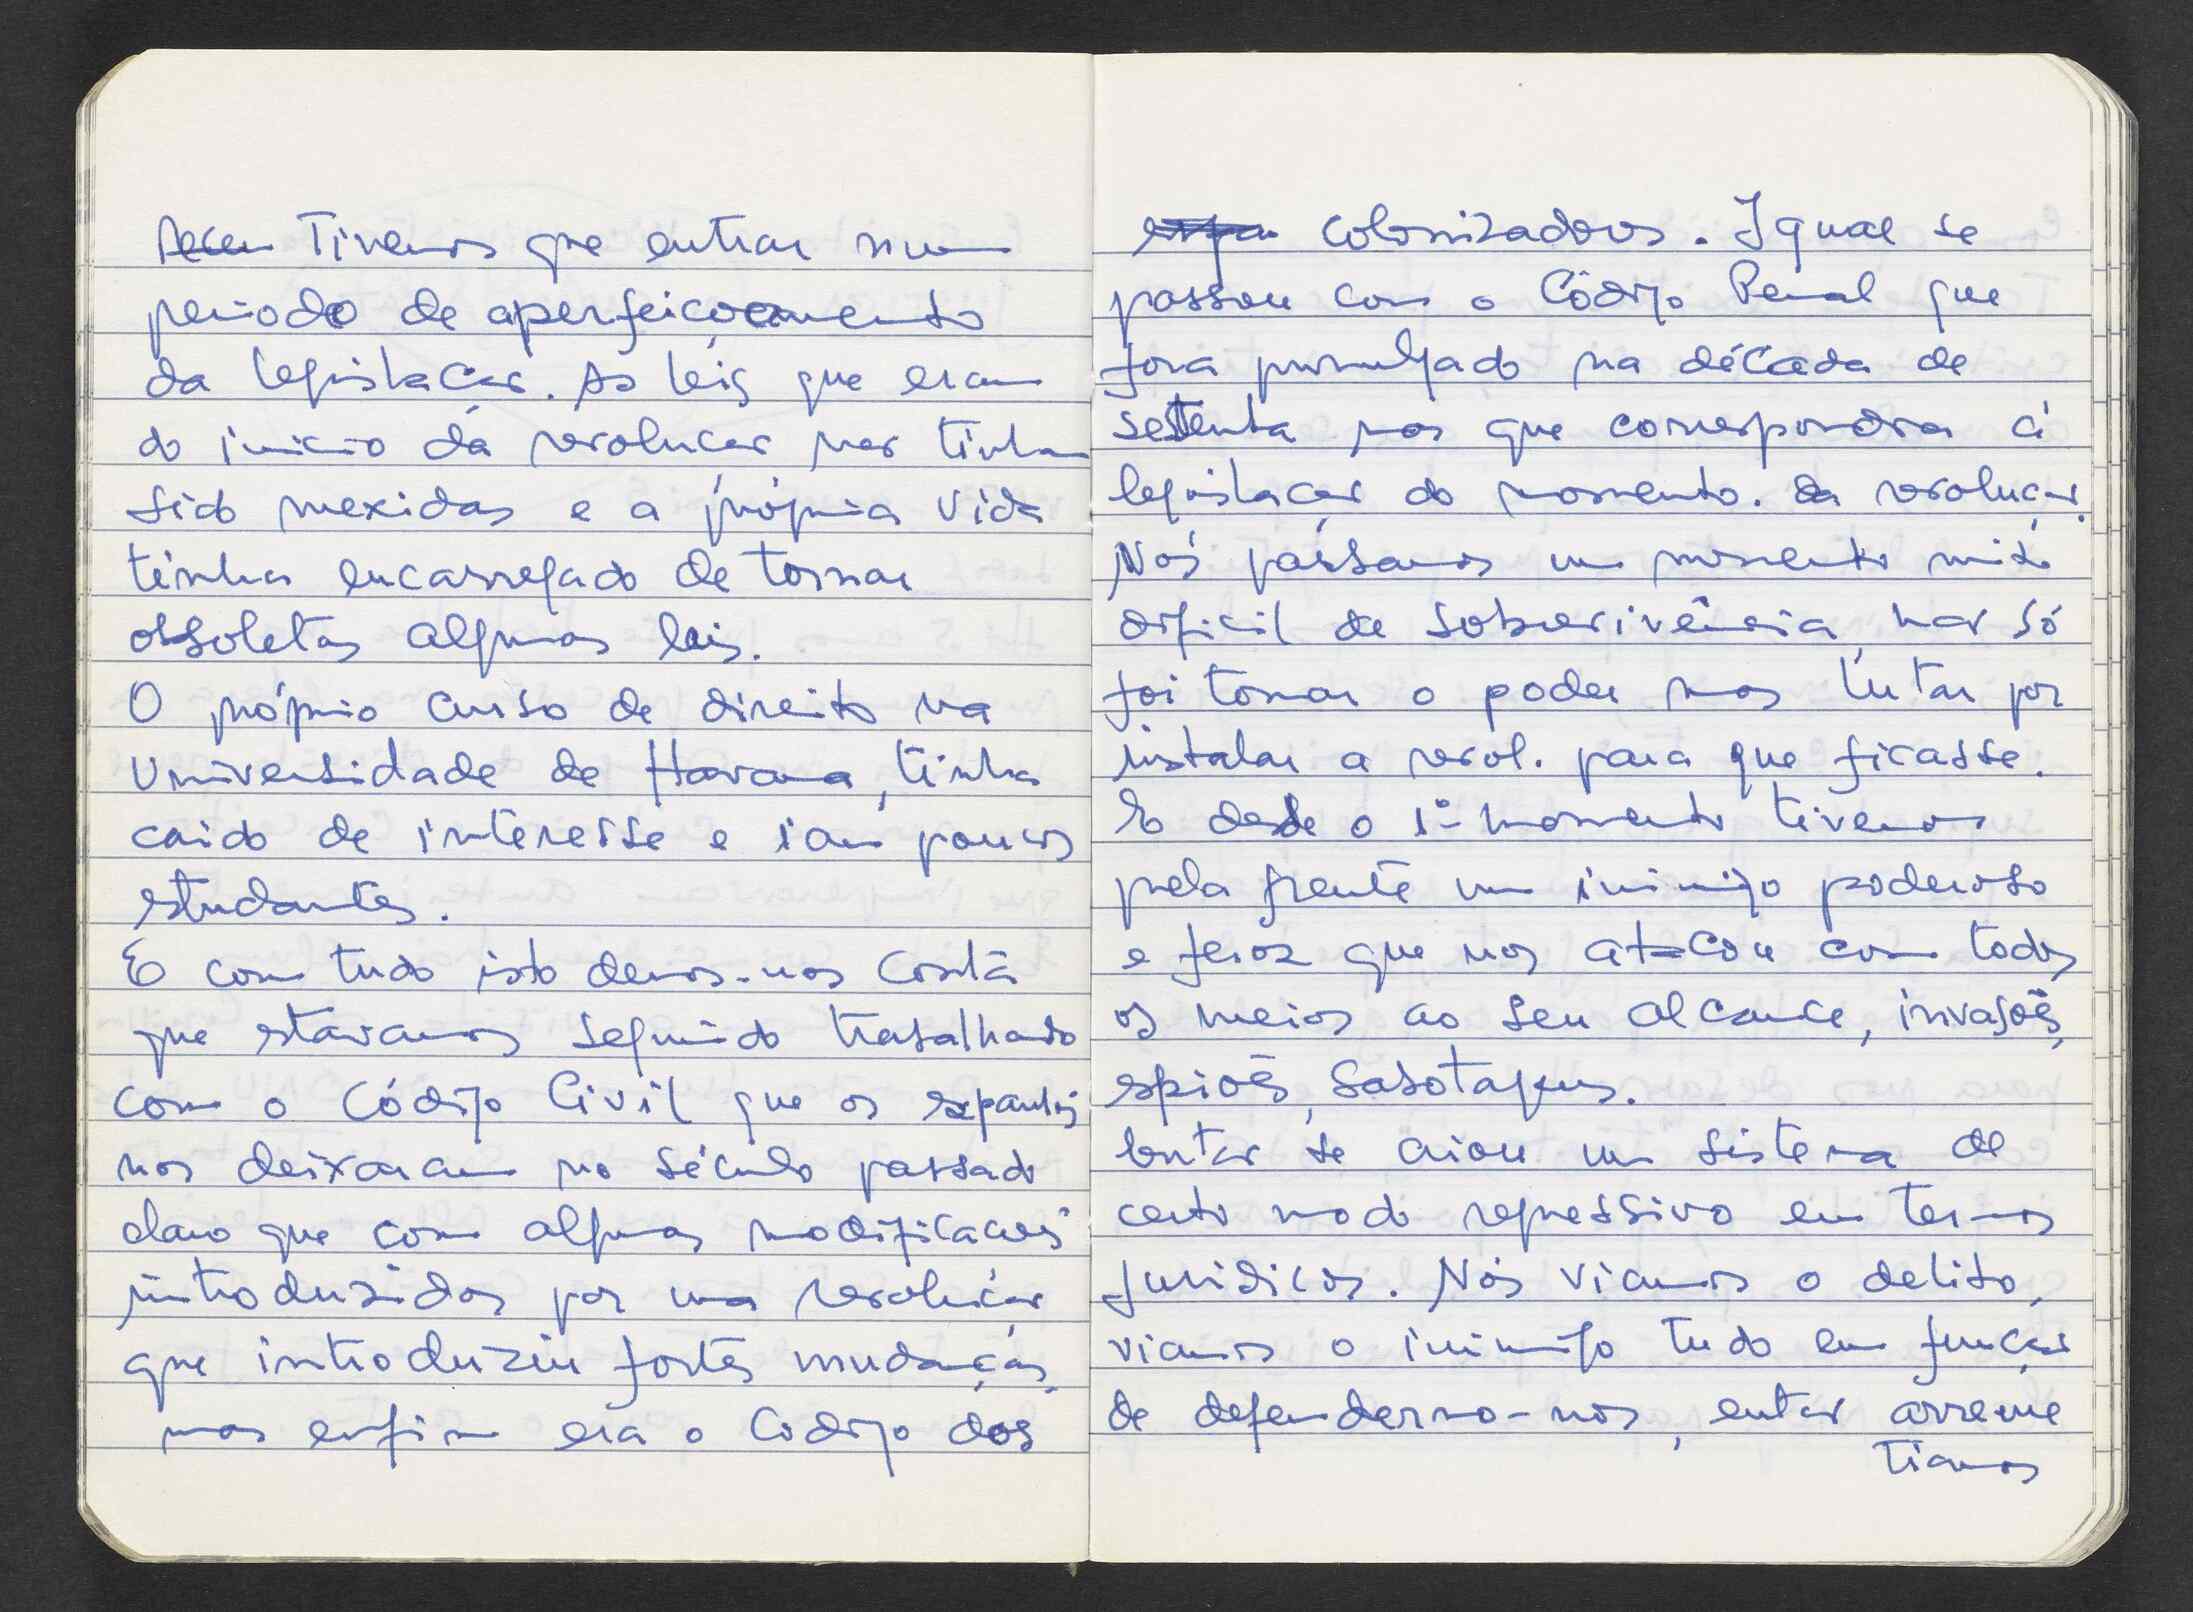 Tivemos que entrar num
periodo de aperfeiçoamento
da legislação. As leis que eram
do inicio da revolução não tinham
sido mexidas e a própria vida
tinha encarregado de tornar
obsoletas algumas leis.
O próprio curso de direito na
Universidade de Havana, tinha
caido de interesse e iam poucos
estudantes.
E com tudo isto demos-nos conta
que estavamos seguindo trabalhado
com o Código Civil que os espanhóis
nos deixaram no século passado
claro que com algumas modificações
introduzidas por uma revolução
que introduziu fortes mudanças,
mas enfim era o Codigo dos
colonizadores. Igual se
passou com o Código Penal que
fora promulgado na década de
setenta mas que correspondia á
legislação do momento. da revolução.
Nós passamos um momento muito
dificil de sobrevivência, não só
foi tomar o poder mas lutar por
instalar a revol. para que ficasse.
E desde o 1º momento tivemos
pela frente um inimigo poderoso
e feroz que nos atacou com todos
os meios ao seu alcance, invasões,
espiões, sabotagens.
Então se criou um sistema de
certo modo repressivo em termos
juridicos. Nós viamos o delito,
viamos o inimigo tudo em função
de defendermo-nos, então arreme
tiamos